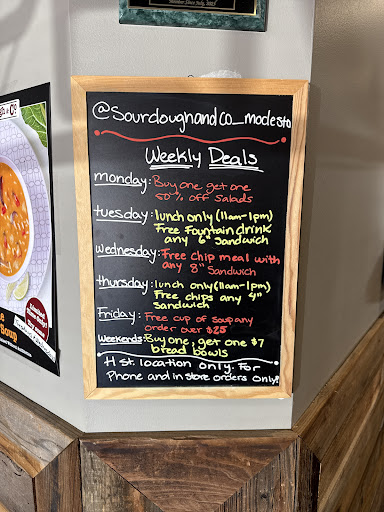 @Sourdoughandco_modesto
Weekly Deals
monday: Buy one get one
50% off salads
tuesday: lunch only (11am-1pm)
Free Fountain drink
any 6" sandwich
wednesday: Free chip meal with
any 8" sandwich
thursday: lunch only (11am-1pm)
Free chips any 4"
sandwich
Friday: Free cup of soup any
order over $25
Weekends: Buy one, get one $7
bread bowls
H st. location only. For
Phone and in store orders only!